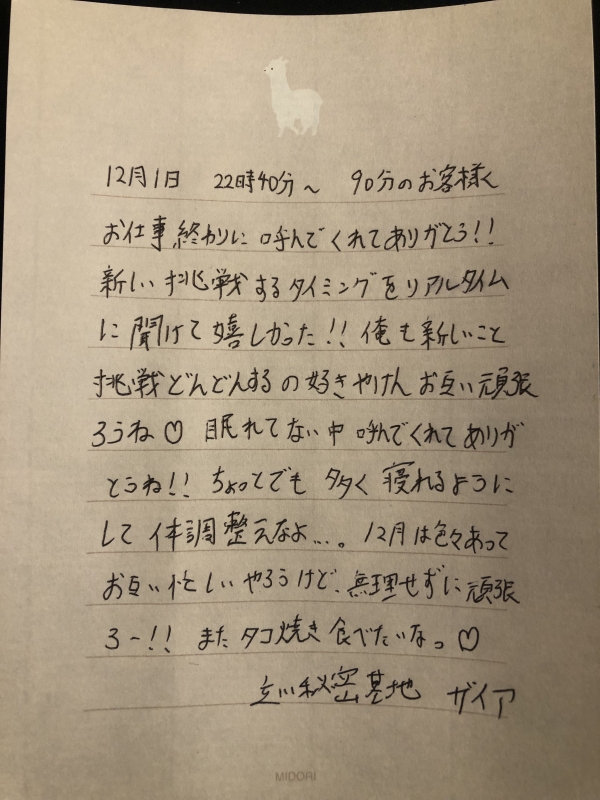 12月1日 22時40分~ 90分のお客様へ
お仕事終わりに呼んでくれてありがとう!!
新しい挑戦するタイミングをリアルタイム
に聞けて嬉しかった!! 俺も新しいこと
挑戦どんどんするの好きやけんお互い頑張
ろうね♡ 眠れてない中呼んでくれてありが
とうね!! ちょっとでも多く寝れるように
して体調整えなよ…。12月は色々あって
お互い忙しいやろうけど、無理せずに頑張
ろー!! またタコ焼き食べたいなっ♡
立川秘密基地 ガイア
MIDORI